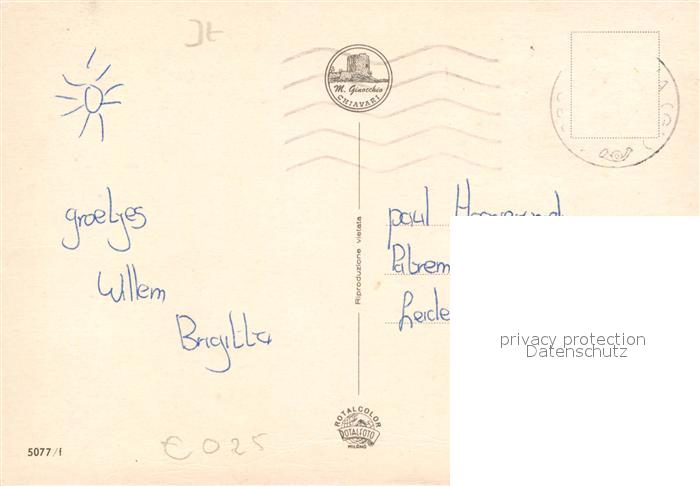 It
M. Ginocchio
CHIAVARI
groetjes
Willem
Brigitta
Riproduzione vietata
paul
Leide
privacy protection
Datenschutz
ROTALCOLOR
ROTALFOTO
MILANO
5077/f
€ 025